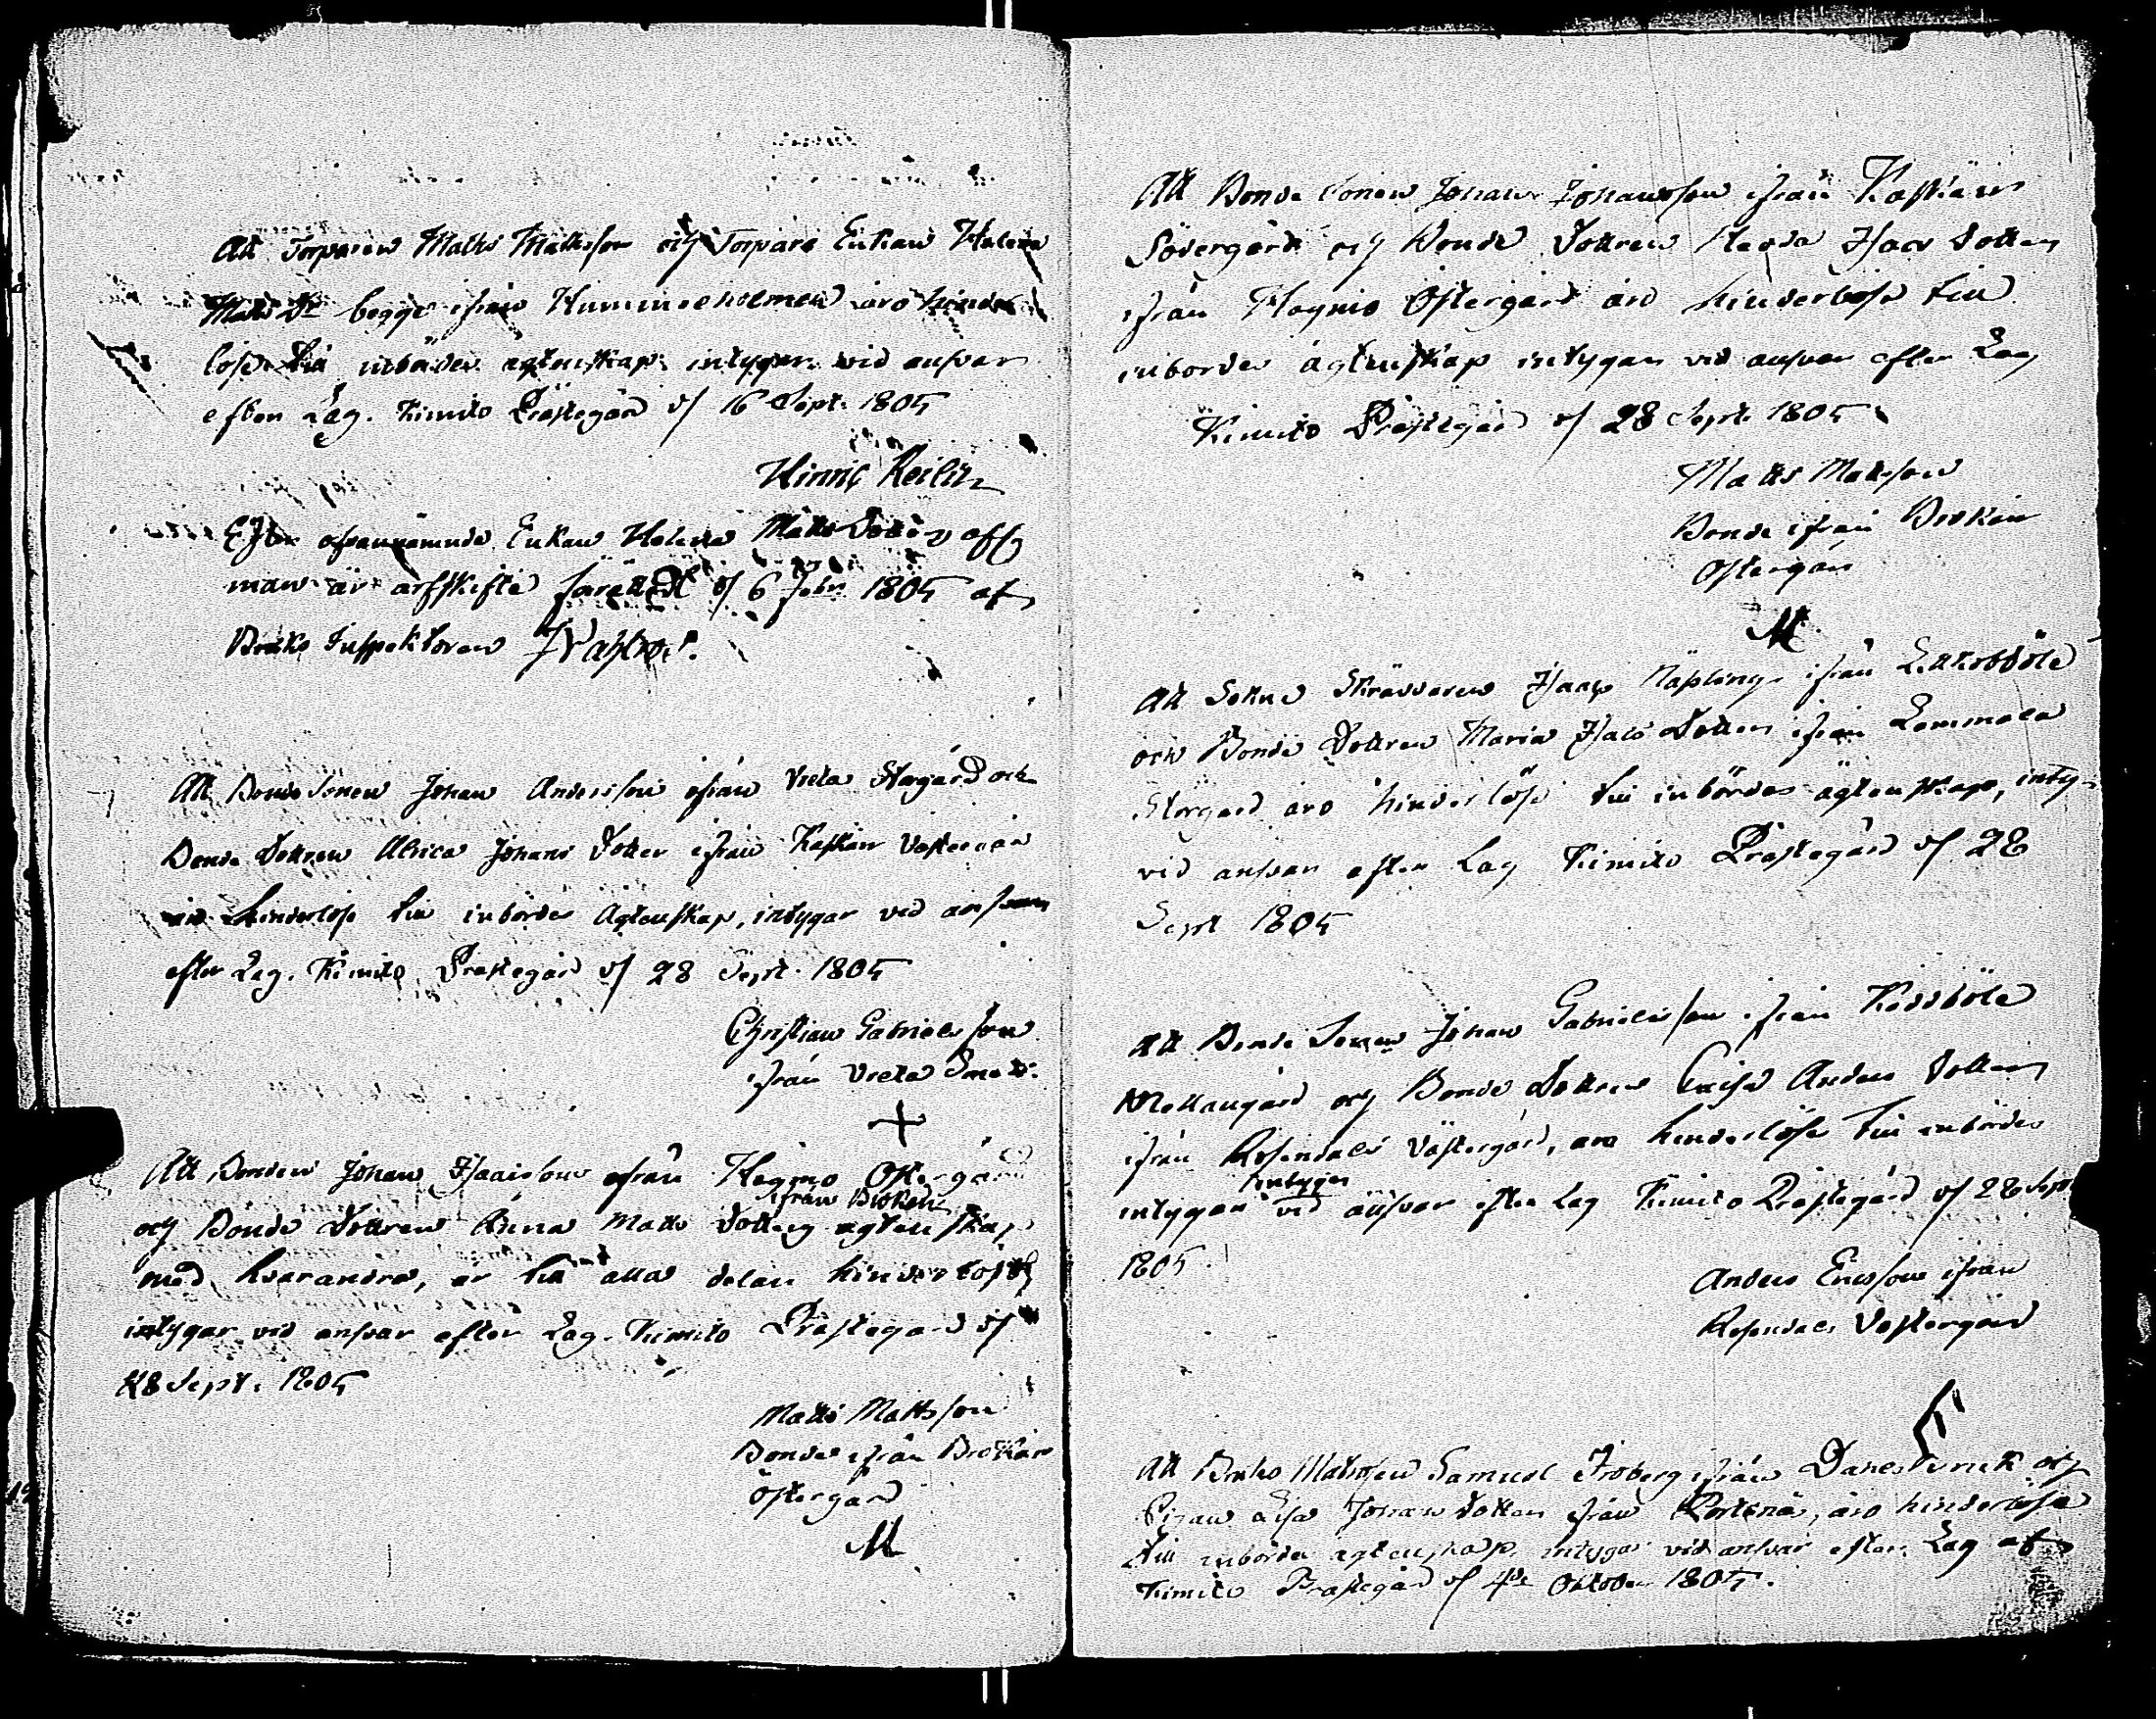 Att Torparen Matts Mattsson och Torpare Enkan Helena
Matts Dr begge ifrån Hummelholmen äro hinder
löse till inbördes ägtenskap intygar vid answar
efter Lag. Kimito Prästegård d/ 16 Sept. 1805
Hinric Reilin
Efter ofvannämnde Enkan Helena Matts Dotters aff
man är arfskifte förrättadt d/ 6 Febr 1805 af
Bruks Inspektoren Wahlroos.
Att Bonde Sonen Johan Andersson ifrån Vreta Stragård och
Bonde Dottren Ulrica Johans Dotter ifrån Kaskär Västergård
äro hinderlöse till inbördes Ägtenskap, intygar vid answar
efter Lag. Kimito Prästegård d/ 28 Sept. 1805
Christian Gabrielsson
ifrån Vreta
Att Bonden Johan Isaacsson ifrån Hägnäs Östergård
ifrån Brokärr
och Bonde Dottren Anna Matts Dotters ägtenskap
med hvarandra, är till alla delar hinderlöst
intygar vid answar efter Lag. Kimito Prästegård d/
28 Sept. 1805
Matts Mattsson
Bonde ifrån Brokärr
Östergård
M
Att Bonde Sonen Johan Johansson ifrån Kaskärr
Södergård och Bonde Dottren Isacs Dotter
ifrån Hägnäs Östergård äro hinderlöse till
inbördes ägtenskap intygar vid answar efter Lag
Kimito Prästegård d/ 28 Sept. 1805
Matts Mattsson
Bonde ifrån Brokärr
Östergård
M
Att Sokne Skräddaren Isaac Näsling ifrån
och Bonde Dottren Maria Isacs Dotter ifrån Lemmala
Storgård äro hinderlöse till inbördes ägtenskap, inty-
vid answar efter Lag Kimito Prästegård d/ 28
Sept 1805
Att Bonde Sonen Johan Gabrielsson ifrån
Mellangård och Bonde Dottren Caisa Anders Dotter
ifrån Rosendals Västergård, äro hinderlöse till inbördes
intyger
intygar vid answar efter Lag Kimito Prästegård d/ 28 Sept
1805.
Anders Ericsson ifrån
Rosendals Västergård
Att Bruks Matrosen Samuel Froberg ifrån Dalsbruk och
Pigan Lisa Johans Dotter ifrån äro hinderlöse
till inbördes ägtenskap intygar vid answar efter Lag af
Kimito Prästegård d/ 4de Oktober 1805.